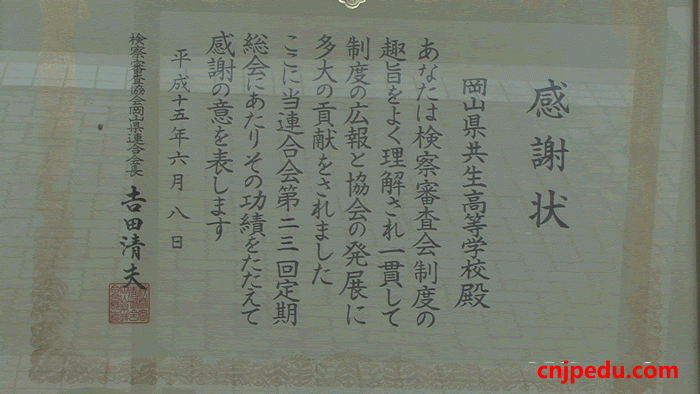 感謝状
岡山県共生高等学校殿
あなたは検察審査会制度の
趣旨をよく理解され一貫して
制度の広報と協会の発展に
多大の貢献をされました
ここに当連合会第二三回定期
総会にあたりその功績をたたえて
感謝の意を表します
平成十五年六月八日
検察審査協会岡山県連合会長
吉田清夫
cnjpedu.com